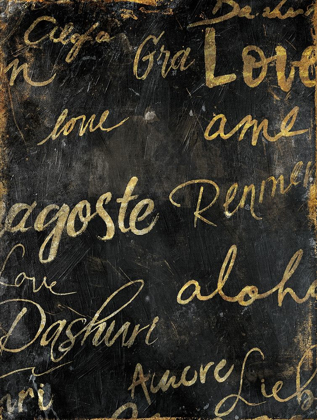 Gra Love
love ame
agoste Renmen
Love aloh
Dashuri
Amore Lieb